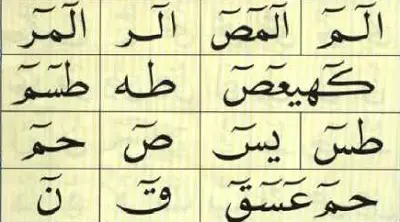 الٓمٓ الٓمٓصٓ الٓر الٓمٓر
كٓهيعٓصٓ طه طسٓمٓ
طسٓ يسٓ صٓ حمٓ
حمٓ عٓسٓقٓ قٓ نٓ